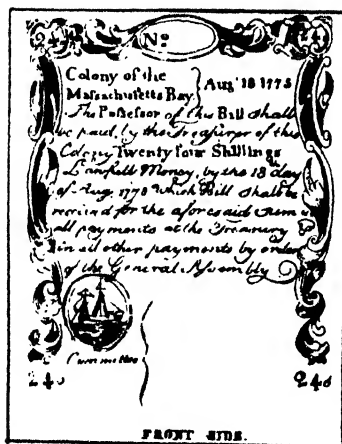 Nº
Colony of the
Massachusetts Bay.
Augt 18 1775
The Possessor of this Bill shall
be paid, by the Treasurer of this
Colony Twenty four Shillings
Lawfull Money, by the 18 day
of Aug. 1778 Which Bill shall be
received for the aforesaid sum in
all payments at the Treasury
in all other payments by order
of the General Assembly
Committee
24s
24s
FRONT SIDE.